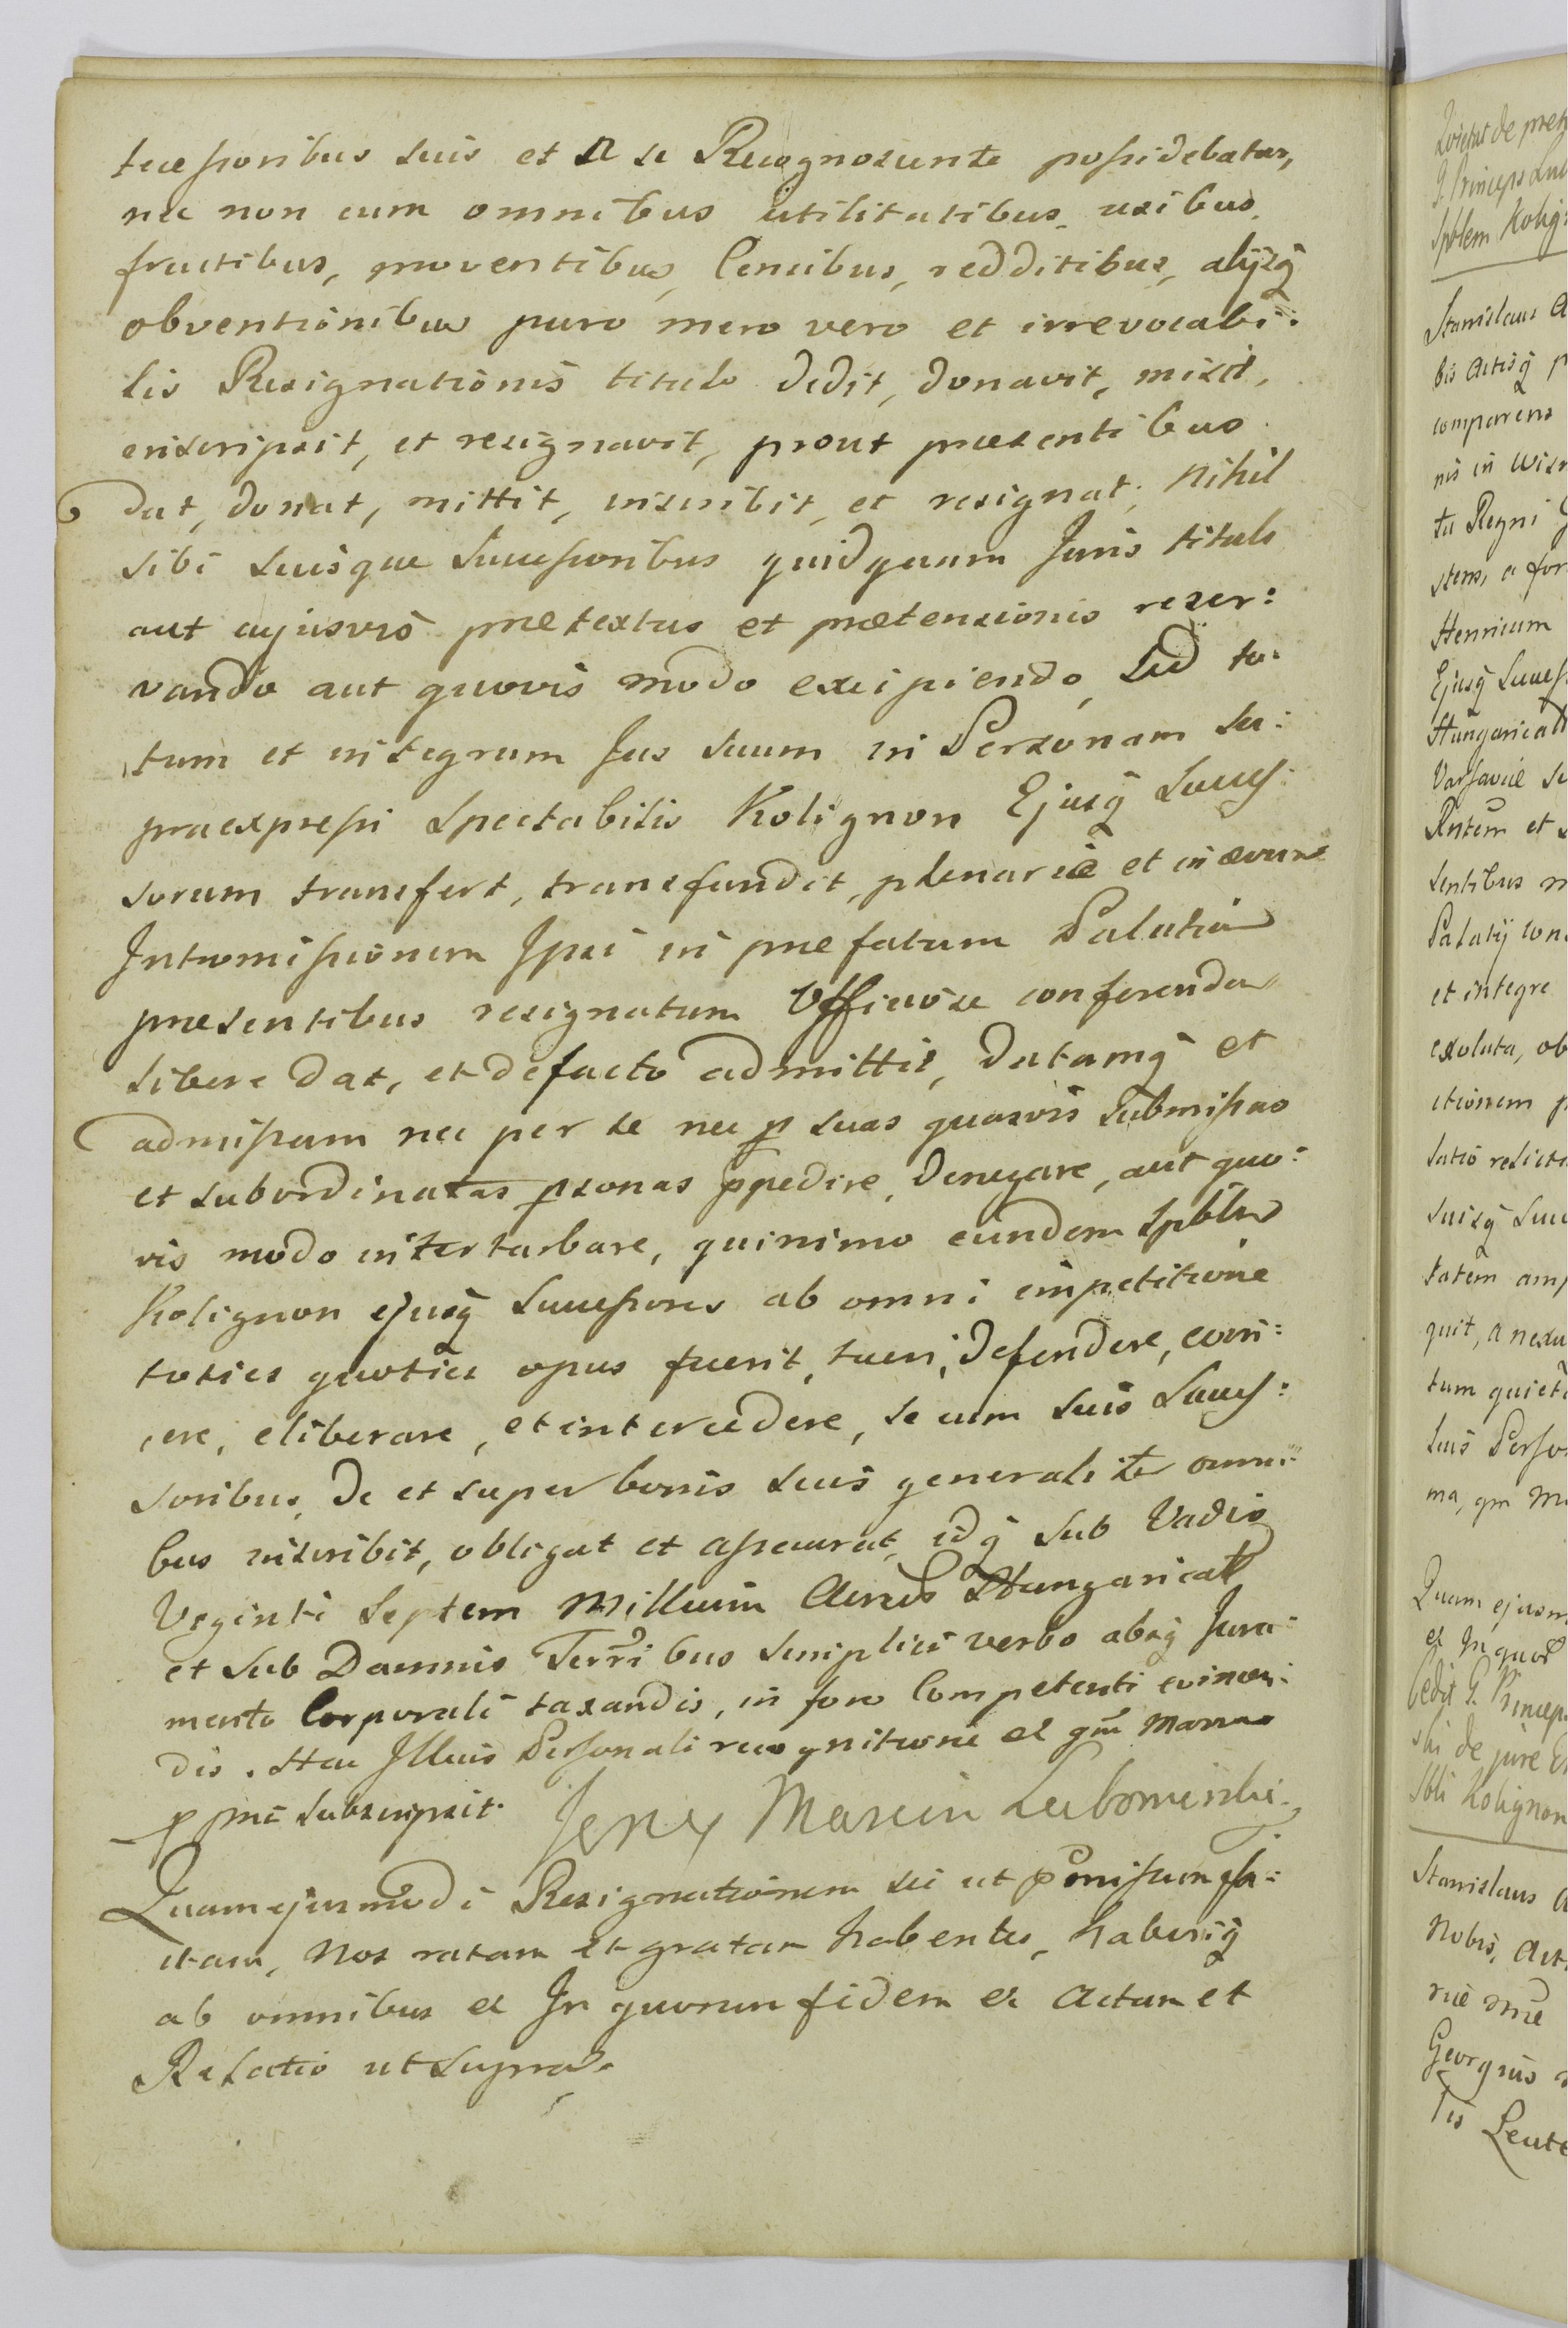 tecessoribus suis et a se Recognoscente possidebatur,
nec non cum omnibus utilitatibus, usibus
fructibus, proventibus, Censibus, redditibus, alijsq̃
obventionibus puro mero vero et irrevocabi:
lis Resignationis titulo dedit, donavit, misit,
inscripsit, et resignavit, prout præsentibus
dat, donat, mittit, inscribit, et resignat. Nihil
sibi suisque Successoribus quidquam Juris tituli
aut cujusvis prætextus et prætensionis reser:
vando aut quovis modo excipiendo, Sed to:
tum et integrum Jus suum in Personam su:
praexpressi Spectabilis Kolignon Ejusq̃ Succes:
sorum transfert, transfundit, plenarie et in ævum
Intromissionem Ipsi in præfatum Palatium
præsentibus resignatum Officiose conferendam
libere dat, et de facto admittit, datamq̃ et
admissam nec per se nec p suas quasvis submissas
et subordinatas psonas ppedire, denegare, aut quo:
vis modo interturbare, quinimo eundem Spblem
Kolignon ejusq̃ Successores ab omni impetitione
toties quoties opus fuerit, tueri, defendere, evin:
cere, eliberare, et intercedere, se cum suis Succes:
soribus, de et super bonis suis generaliter omni:
bus inscribit, obligat et assecurat, idq̃ sub Vadio
Viginti Septem Millium Aureor Hungarical
et sub Damnis Terribus simplici verbo absq̃ Jura:
mento Corporali taxandis, in foro Competenti evincen:
dis. Hac Illius Personali recognitione et qm̃ Manus
p me subscripsit. Jerzy Marcin Lubomirski
Quam ejusmodi Resignationem sic ut pmissum fa:
ctam, Nos ratam et gratam habentes, haberiq̃
ab omnibus et In quorum fidem et Actum et
Relatio ut supra.
Stanislaus
bis Actisq̃
comparens
nis in
ta Regni
stens, a for
Henricum
Ejusq̃ Success
Hungarical
Varsaviæ
et
sentibus
Palatij
et integre
exoluta, ob
ctionem
suisq̃
quit, a nexu
tum
suis Perso
ma, qm
Quam ejusm
et In quor
Cedit P. Princep
ski de jure
Spbli Kolignon
Stanislaus
Nobis, Act
Georgius